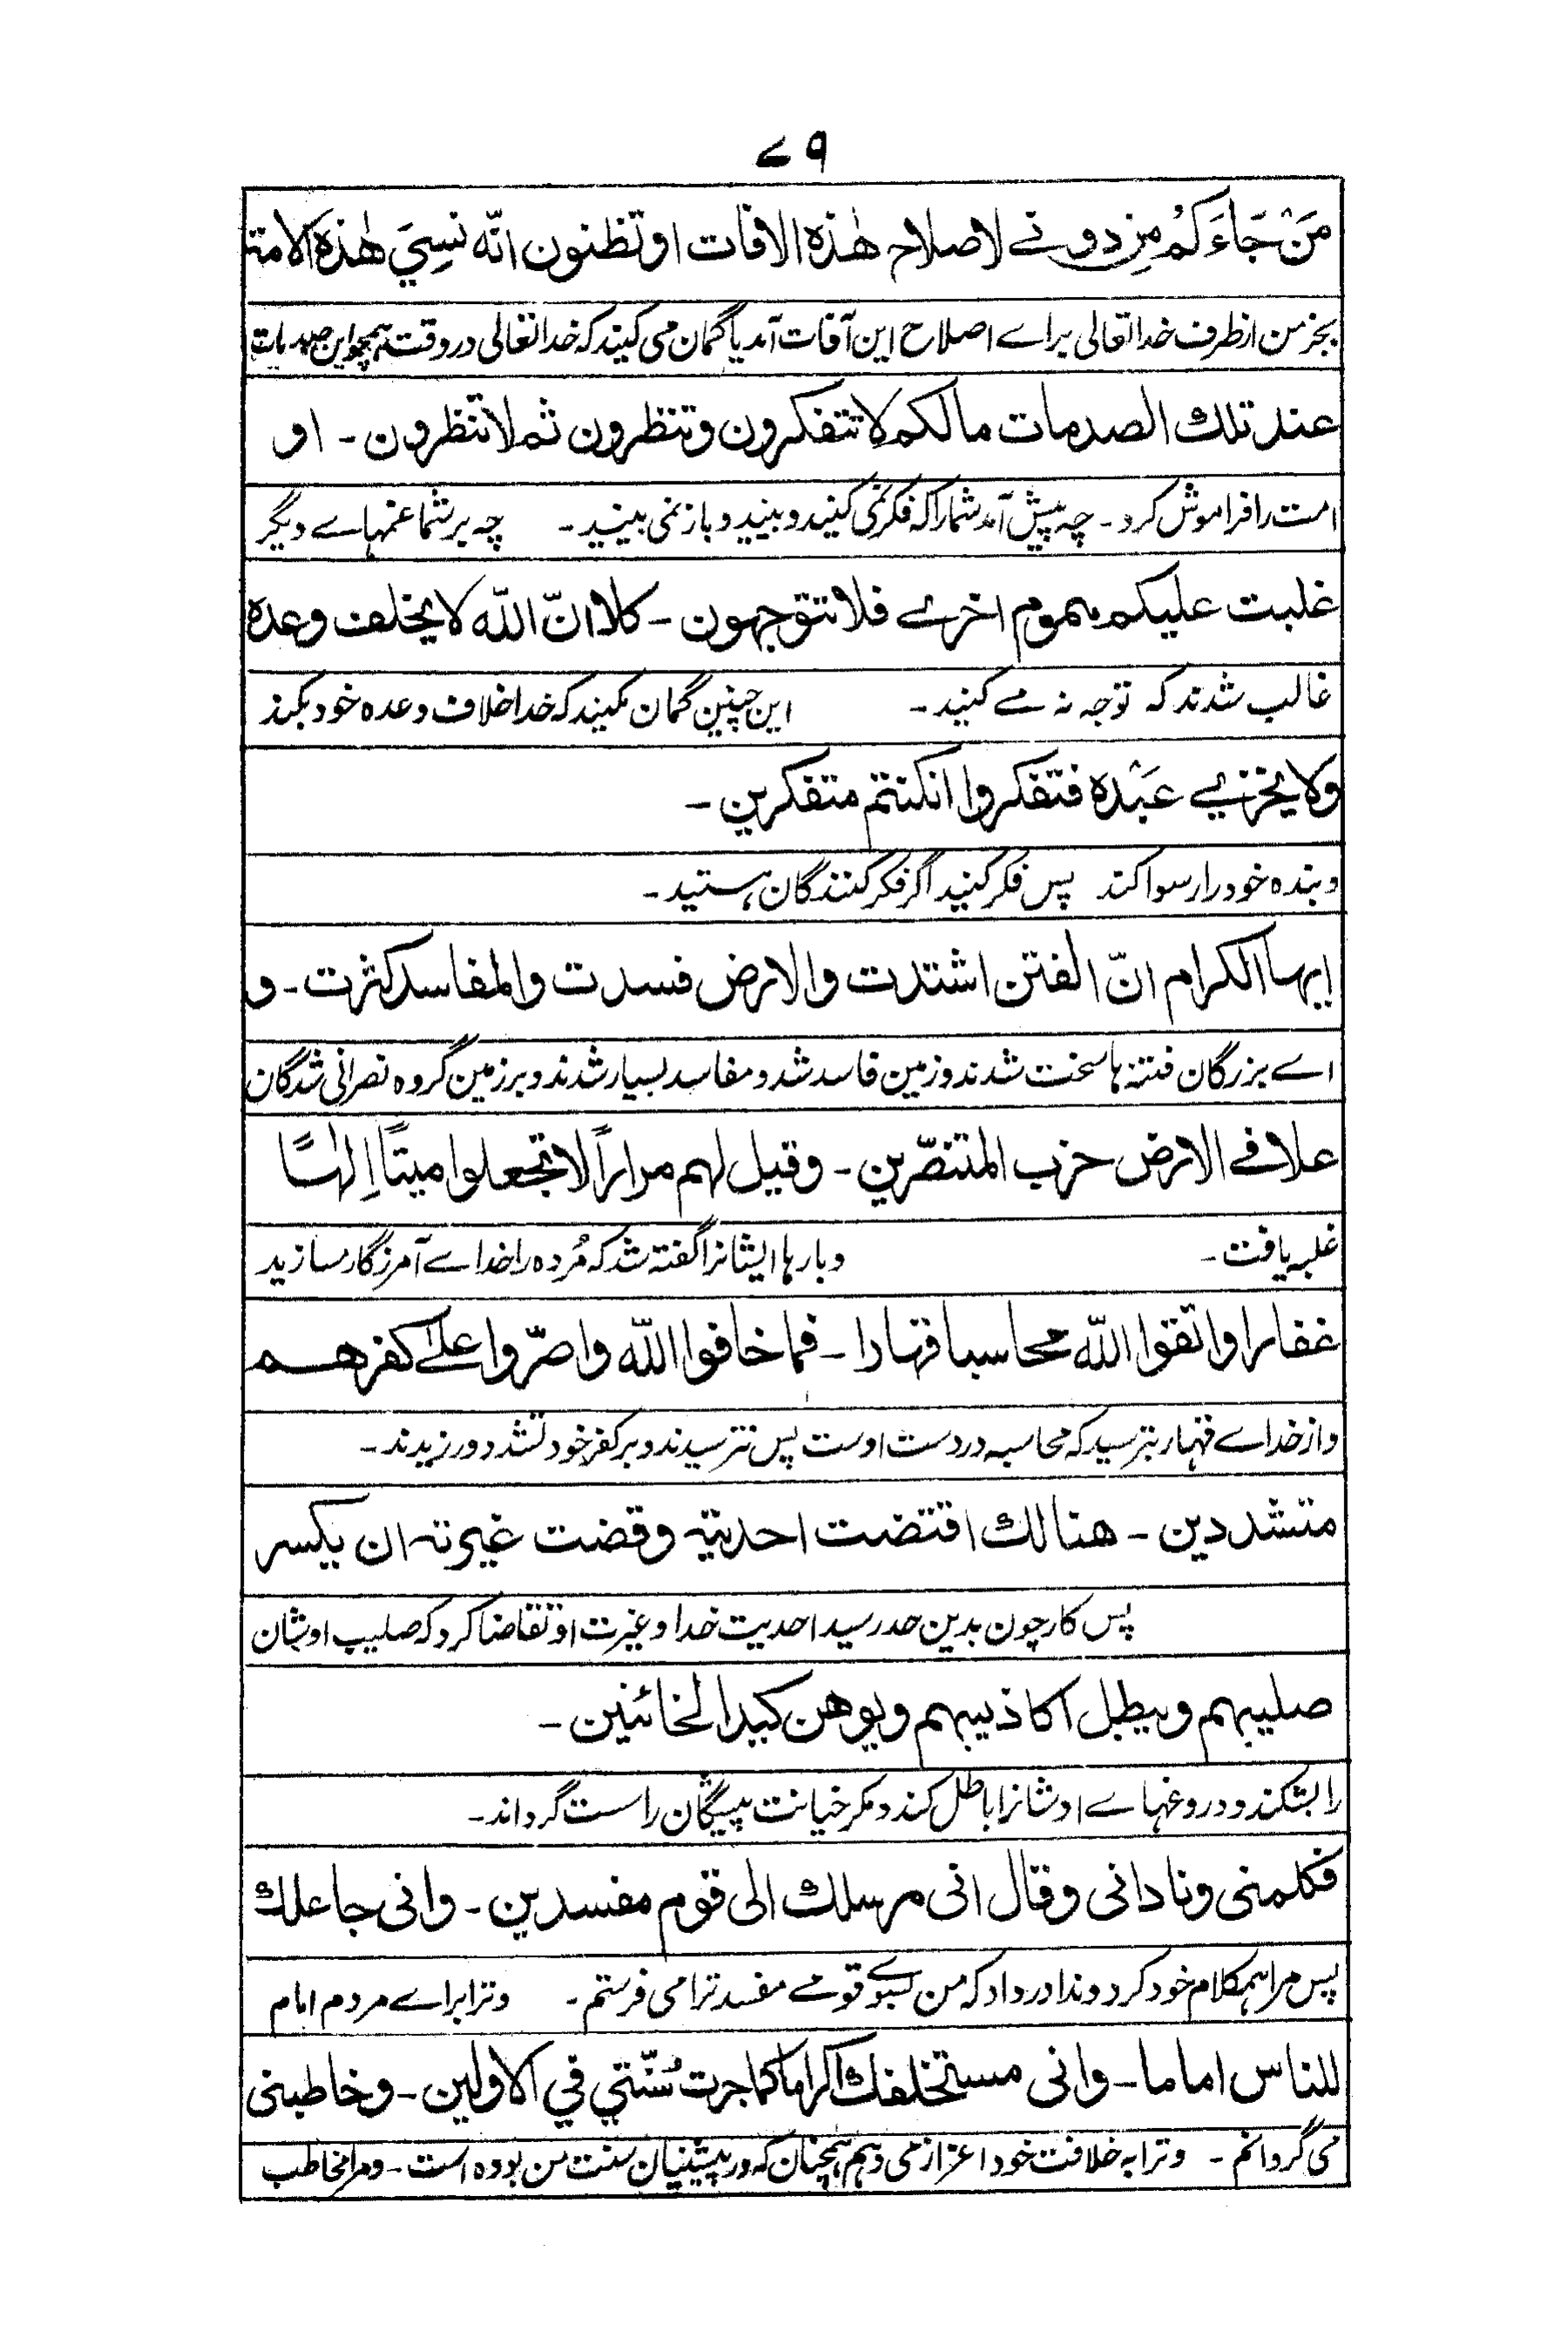 ۷۹
مَنْ جَاءَكُم مِن دونے لاصلاح هٰذه الافات او تظنون انّه نسِيَ هٰذه الامة
بجز من از طرف خدا تعالی براے اصلاح این آفات آمد یا گمان می کنید که خدا تعالی در وقت ہمچو این صدمات
عند تلك الصدمات مالكم لا تتفكرون وتنظرون ثم لا تنظرون - او
امت را فراموش کرد - چہ پیش آمد شمارا کہ فکر نمی کنید و بینید و باز نمی بینید - چہ بر شما غمہاے دیگر
غلبت عليكم هموم اخرے فلا تتوجهون - كلا انّ اللّٰه لا يخلف وعده
غالب شدند کہ توجہ نہ مے کنید - این چنین گمان مکنید کہ خدا خلاف وعدہ خود بکند
ولا يخزيے عَبْده فتفكروا انكنتم متفكرين -
و بندہ خود را رسوا کند پس فکر کنید اگر فکر کنندگان ہستید -
ايها الكرام انّ الفتن اشتدت والارض فسدت والمفاسد كثرت - و
اے بزرگان فتنہ ہا سخت شدند و زمین فاسد شد و مفاسد بسیار شدند و بر زمین گروہ نصرانی شدگان
علا فے الارض حزب المتنصّرين - وقيل لهم مراراً لا تجعلوا ميتاً اِلٰهًا
غلبہ یافت - و بارہا ایشانرا گفتہ شد کہ مُردہ را خداے آمرزگار مسازید
غفارا واتقوا اللّٰه محاسبا قهارا - فما خافوا اللّٰه واصرّوا علےٰ كفرهم
و از خداے قہار بترسید کہ محاسبہ در دست اوست پس نترسیدند و بر کفر خود تشدد ورزیدند -
متشددين - هنالك اقتضت احديته وقضت غيرته ان يكسر
پس کار چون بدین حد رسید احدیت خدا و غیرت او تقاضا کرد کہ صلیب اوشان
صليبهم ويبطل اكاذيبهم ويوهن كيد الخائنين -
را بشکند و دروغہاے اوشانرا باطل کند و مکر خیانت پیشگان را سست گرداند -
فكلمنى ونادانى وقال انى مرسلك الى قوم مفسدين - وانى جاعلك
پس مرا ہمکلام خود کرد و ندا در داد کہ من بسوے قومے مفسد ترا می فرستم - و ترا براے مردم امام
للناس اماما - وانى مستخلفك اكراما كما جرت سُنّتي في الاولين - وخاطبنى
می گردانم - و ترا بہ خلافت خود اعزاز می دہم ہمچنان کہ در پیشینیان سنت من بودہ است - و مرا مخاطب